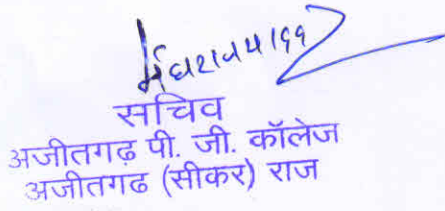 सचिव
अजीतगढ़ पी. जी. कॉलेज
अजीतगढ (सीकर) राज